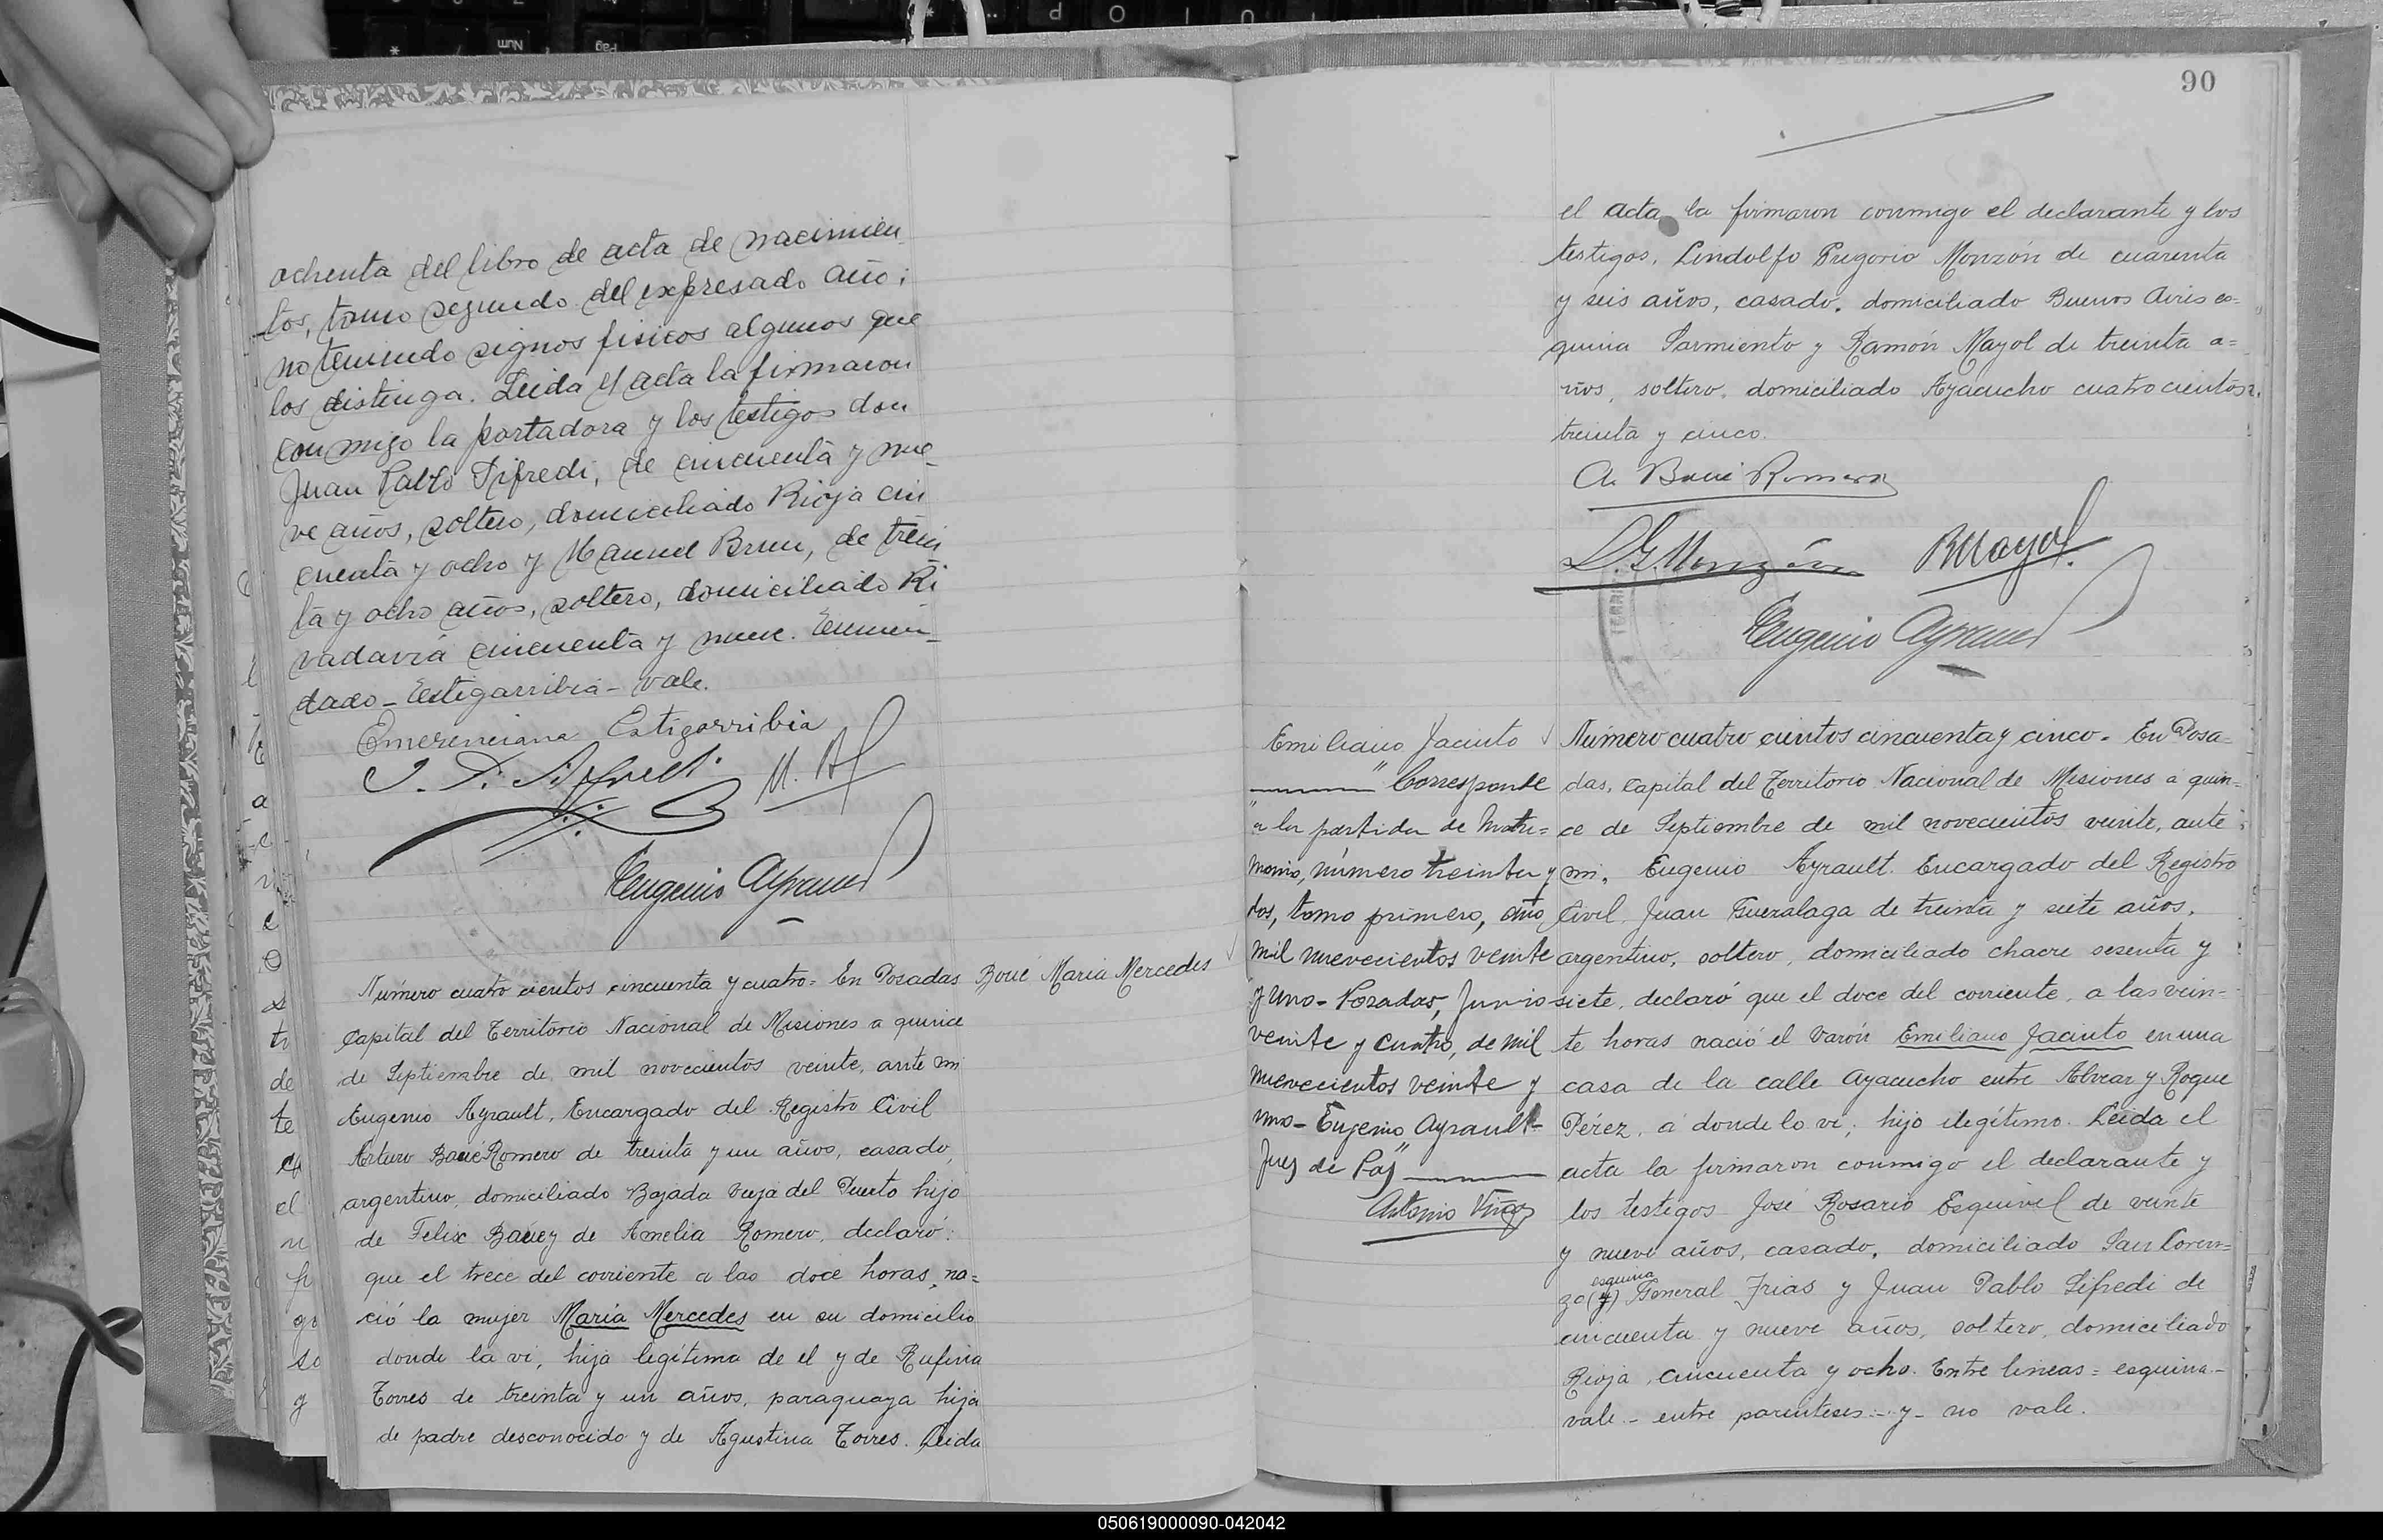 ochenta del libro de acta de nacimien
tos, tomo segundo del expresado año;
no teniendo signos fisicos algunos que
los distinga. Leida el acta la firmaron
conmigo la portadora y los testigos don
Juan Pablo Sifredi, de cincuenta y nue-
ve años, soltero, domiciliado Rioja cin
cuenta y ocho y Manuel Brun, de trein
ta y ocho años, soltero, domiciliado Ri
vadavia cincuenta y nueve. Enmen-
dado - Estigarribia - vale.
Emerenciana Estigarribia
Eugenio Ayrault
Número cuatro cientos cincuenta y cuatro = En Posadas
Boué María Mercedes
Capital del Territorio Nacional de Misiones a quince
de Septiembre de mil novecientos veinte, ante mi
Eugenio Ayrault, Encargado del Registro Civil
Arturo Boué Romero de treinta y un años, casado,
argentino, domiciliado Bajada vieja del Puerto hijo
de Felix Boué y de Amelia Romero, declaró:
que el trece del corriente a las doce horas, na=
ció la mujer María Mercedes en su domicilio
donde la vi, hija legítima de el y de Rufina
Torres de treinta y un años, paraguaya hija
de padre desconocido y de Agustina Torres. Leida
90
el acta la firmaron conmigo el declarante y los
testigos, Lindolfo Gregorio Monzón de cuarenta
y seis años, casado, domiciliado Buenos Aires es=
quina Sarmiento y Ramón Mayol de treinta a=
ños, soltero, domiciliado Ayacucho cuatrocientos
treinta y cinco.
A. Boué Romero
L. G. Monzón R Mayol.
Eugenio Ayrault
Emiliano Jacinto
" Corresponde
"a la partida de Matri=
monio, número treinta y
dos, tomo primero, año
mil nuevecientos veinte
y uno - Posadas, Junio
veinte y cuatro, de mil
nuevecientos veinte y
uno - Eugenio Ayrault -
Juez de Paz"
Antonio
Número cuatro cientos cincuenta y cinco. En Posa=
das, Capital del Territorio Nacional de Misiones a quin=
ce de Septiembre de mil novecientos veinte, ante
mi, Eugenio Ayrault. Encargado del Registro
Civil, Juan Gueralaga de treinta y siete años,
argentino, soltero, domiciliado chacre sesenta y
siete, declaró que el doce del corriente, a las vein=
te horas nació el varón Emiliano Jacinto en una
casa de la calle Ayacucho entre Alvear y Roque
Pérez, á donde lo vi; hijo ilegítimo. Leida el
acta la firmaron conmigo el declarante y
los testigos José Rosario Esquivel de veinte
y nueve años, casado, domiciliado San Loren=
esquina
zo (y) General Frias y Juan Pablo Sifredi de
cincuenta y nueve años, soltero, domiciliado
Rioja, cincuenta y ocho. Entre lineas = esquina -
vale - entre parenteses - y - no vale.
050619000090-042042